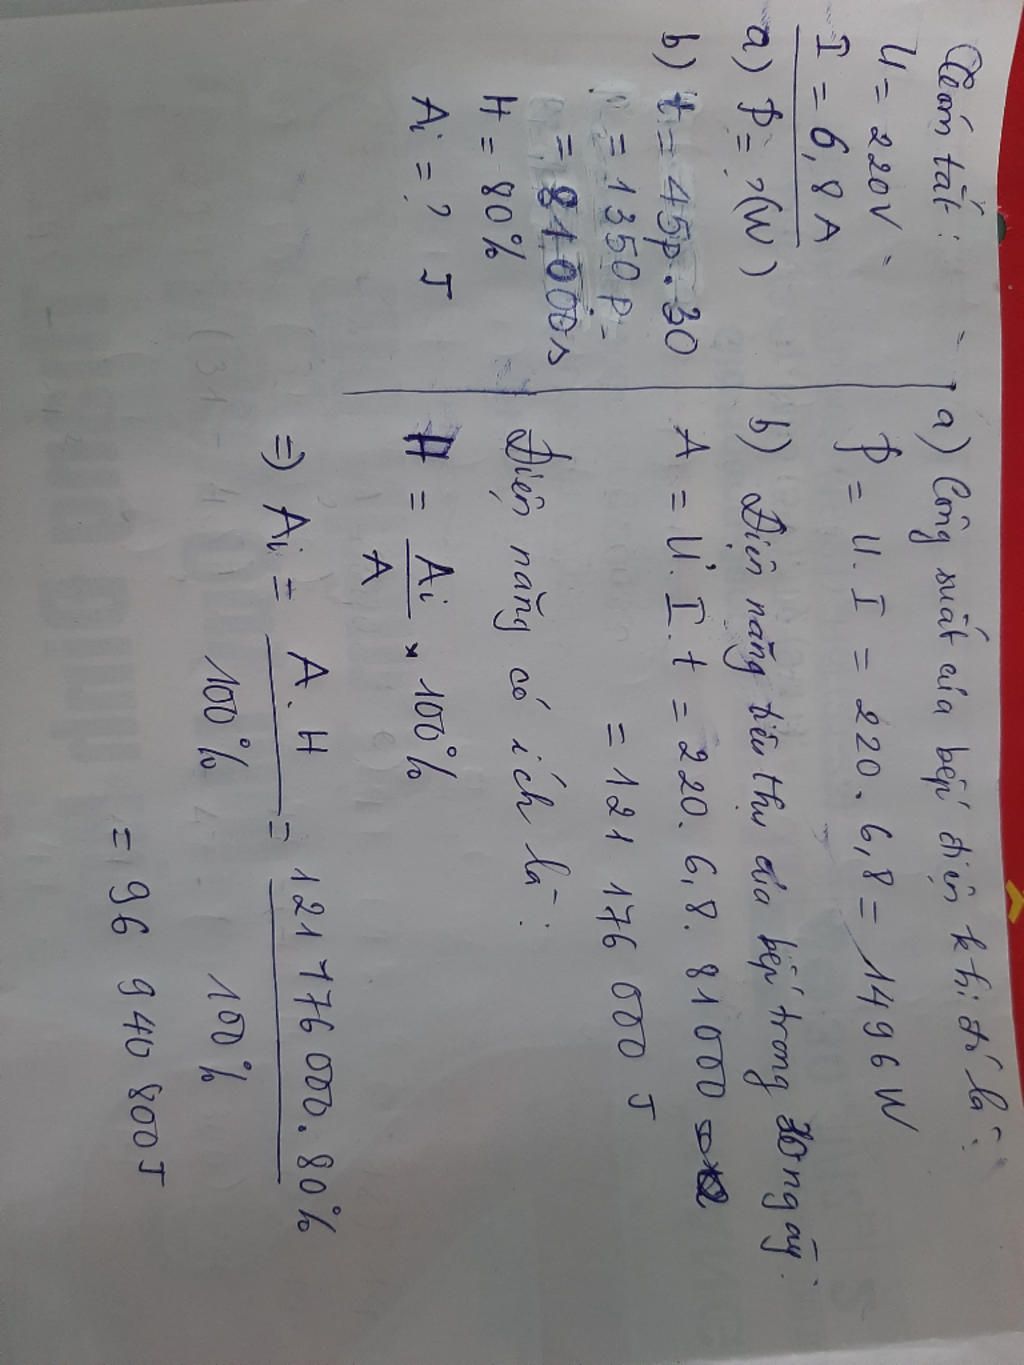 Tóm tắt:
U = 220V
I = 6,8 A
a) P = ? (W)
b) t = 45p . 30
= 1350 p
= 81 000 s
H = 80%
Ai = ? J
a) Công suất của bếp điện khi đó là:
P = U . I = 220 . 6,8 = 1496 W
b) Điện năng tiêu thụ của bếp trong 30 ngày:
A = U . I . t = 220 . 6,8 . 81 000
= 121 176 000 J
Điện năng có ích là:
H = Ai / A × 100%
=> Ai = A . H / 100% = 121 176 000 . 80% / 100%
= 96 940 800 J